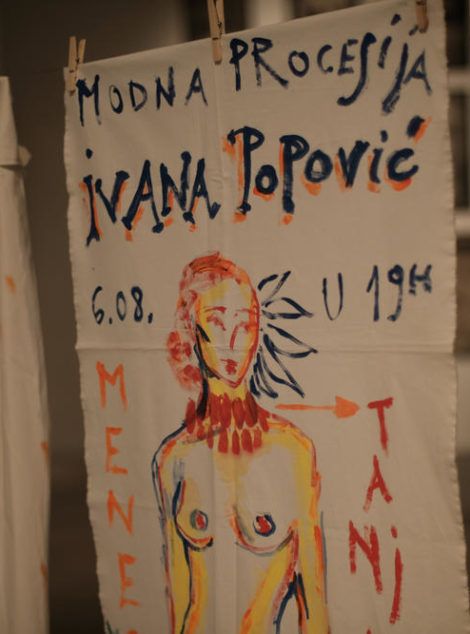 MODNA PROCESIJA
IVANA POPOVIĆ
6.08. U 19H